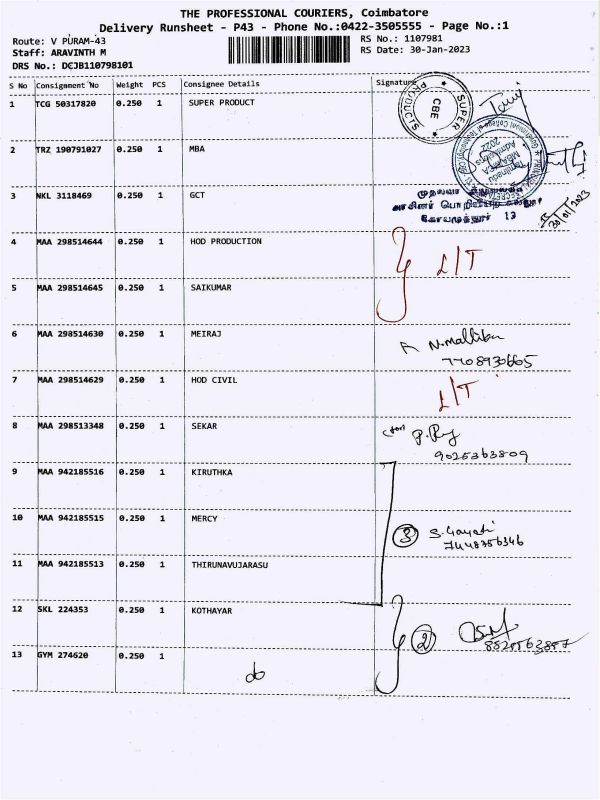 THE PROFESSIONAL COURIERS, Coimbatore
Delivery Runsheet - P43 - Phone No.:0422-3505555 - Page No.:1
Route: V PURAM-43
RS No.: 1107981
Staff: ARAVINTH M
RS Date: 30-Jan-2023
DRS No.: DCJB110798101
S No Consignment No Weight PCS Consignee Details Signature
1 TCG 50317820 0.250 1 SUPER PRODUCT
SUPER PRODUCTS CBE
2 TRZ 190791027 0.250 1 MBA
Tamilnadu
MBA/MCA
Admissions
2022
3 NKL 3118469 0.250 1 GCT
கோயமுத்தூர் 13
30/01/2023
4 MAA 298514644 0.250 1 HOD PRODUCTION
L/T
5 MAA 298514645 0.250 1 SAIKUMAR
6 MAA 298514630 0.250 1 MEIRAJ
N.Mallika
7708930665
7 MAA 298514629 0.250 1 HOD CIVIL
L/T
8 MAA 298513348 0.250 1 SEKAR
9025363809
9 MAA 942185516 0.250 1 KIRUTHKA
10 MAA 942185515 0.250 1 MERCY
3 S.Gayatri
7448356346
11 MAA 942185513 0.250 1 THIRUNAVUJARASU
12 SKL 224353 0.250 1 KOTHAYAR
2
13 GYM 274620 0.250 1
do